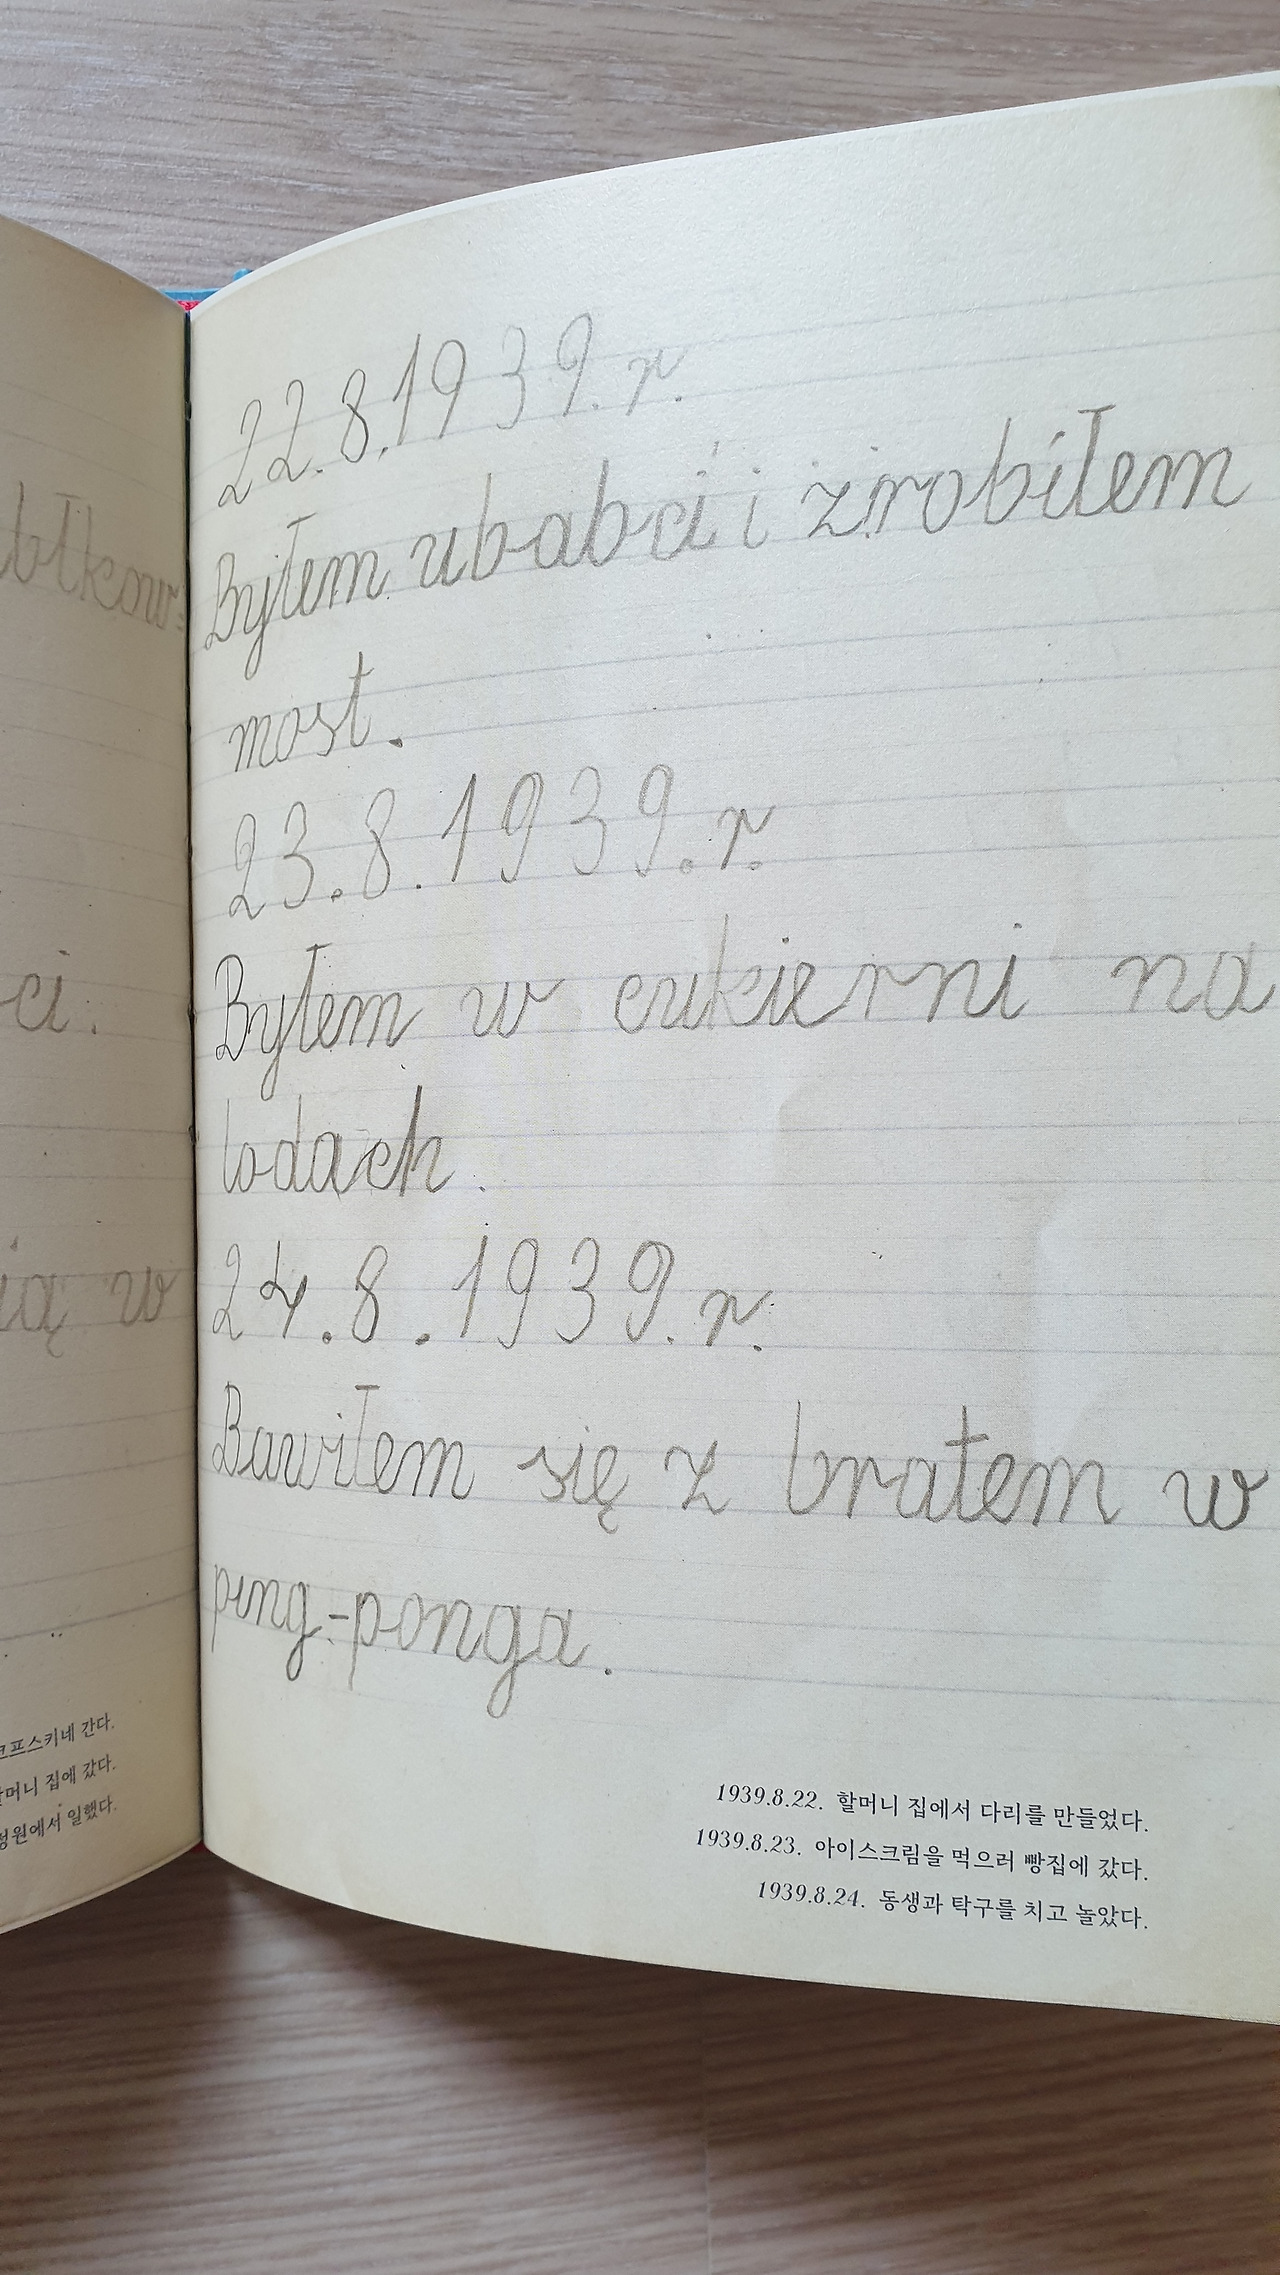 błkow=
ci.
ią w
크프스키네 간다.
할머니 집에 갔다.
정원에서 일했다.
22.8.1939.r.
Byłem u babci i zrobiłem
most.
23.8.1939.r.
Byłem w cukierni na
lodach.
24.8.1939.r.
Bawiłem się z bratem w
ping-ponga.
1939.8.22. 할머니 집에서 다리를 만들었다.
1939.8.23. 아이스크림을 먹으러 빵집에 갔다.
1939.8.24. 동생과 탁구를 치고 놀았다.